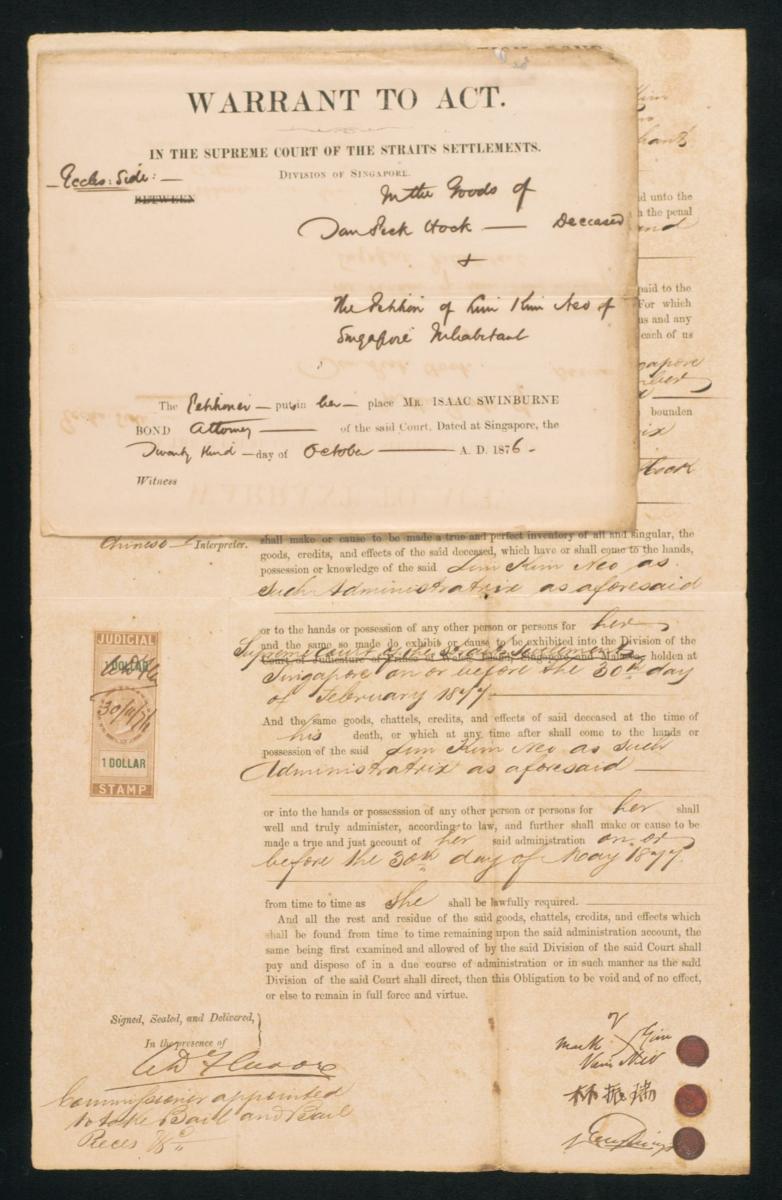 WARRANT TO ACT.
IN THE SUPREME COURT OF THE STRAITS SETTLEMENTS.
DIVISION OF SINGAPORE.
Eccles: Side: —
BETWEEN
In the Goods of
Tan Peck Hock — Deceased
&
The Petition of Lim Kim Neo of
Singapore Inhabitant
The Petitioner — puts in her — place MR. ISAAC SWINBURNE
BOND Attorney — of the said Court. Dated at Singapore, the
— day of October — A. D. 1876 -
Witness
d unto the
the penal
paid to the
For which
us and any
each of us
gapore
mber
bounden
rix
Hock
Chinese Interpreter.
shall make or cause to be made a true and perfect inventory of all and singular, the
goods, credits, and effects of the said deceased, which have or shall come to the hands,
possession or knowledge of the said Lim Kim Neo as
Such Administratrix as aforesaid
or to the hands or possession of any other person or persons for her
and the same so made do exhibit or cause to be exhibited into the Division of the
Supreme Court of the Straits Settlements
Court of Judicature of Prince of Wales Island, Singapore and Malacca, holden at
Singapore on or before the 30th day
of February 1877-
And the same goods, chattels, credits, and effects of said deceased at the time of
his death, or which at any time after shall come to the hands or
possession of the said Lim Kim Neo as Such
Administratrix as aforesaid —
or into the hands or possesssion of any other person or persons for her shall
well and truly administer, according to law, and further shall make or cause to be
made a true and just account of her said administration on or
before the 30th day of May 1877.
from time to time as she shall be lawfully required.
And all the rest and residue of the said goods, chattels, credits, and effects which
shall be found from time to time remaining upon the said administration account, the
same being first examined and allowed of by the said Division of the said Court shall
pay and dispose of in a due course of administration or in such manner as the said
Division of the said Court shall direct, then this Obligation to be void and of no effect,
or else to remain in full force and virtue.
JUDICIAL
1 DOLLAR
30/11/76
1 DOLLAR
STAMP
Signed, Sealed, and Delivered,
In the presence of
Commissioner appointed
to take Bail and Bail
Pieces &c
mark Lim
Neo
林振瑞